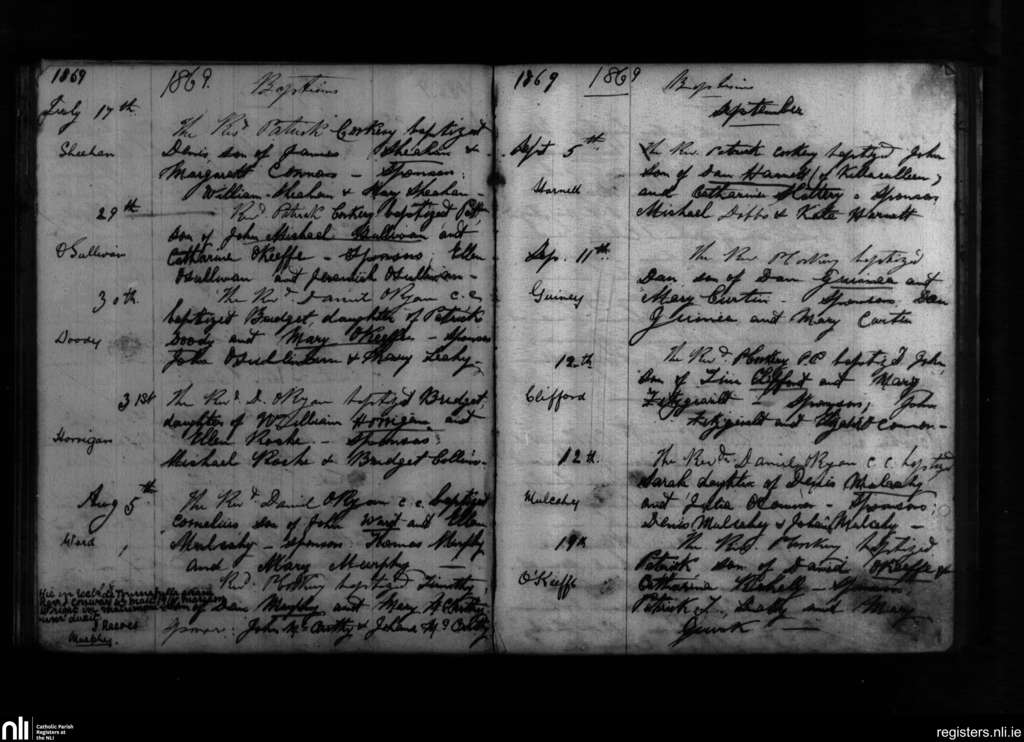 1869
1869. Baptisms
July 17th
The Revd Patrick Corkery baptized
Sheehan
Denis son of James Sheehan &
Margaret Connors - Sponsors:
William Sheahan & Mary Sheahan -
29th
Revd Patrick Corkery baptized Patk
son of John Michael Sullivan and
O'Sullivan
Catharine O'Keeffe - Sponsors, Ellen
O'Sullivan and Jeremiah O'Sullivan -
30th
The Revd Daniel O'Ryan c.c.
baptized Bridget, daughter of Patrick
Doody
Doody and Mary O'Keeffe - Sponsors
John & Mary Leahy -
31st
The Revd D. O'Ryan baptized Bridget
daughter of William Horrigan and
Horrigan
Ellen Roche. - Sponsors:
Michael Roche & Bridget Collins -
Aug 5th
The Revd Daniel O'Ryan c.c. baptized
Cornelius son of John Ward and Ellen
Ward
Mulcahy - Sponsors Thomas Murphy
and Mary Murphy -
Revd P Corkery baptized Timothy
son of Dan Murphy and Mary McCarthy
Sponsors: John McCarthy & Johana McCarthy
Murphy.
1869
1869 Baptisms
September
Sept 5th
The Rev. Patrick Corkery baptized John
Harnett
son of Dan Harnett (of Killaculleen)
and Catharine Slattery - Sponsors
Michael Dobbs & Kate Harnett
Sep. 11th
The Rev P Corkery baptized
Dan. son of Dan Guinee and
Guiney
Mary Curtin - Sponsors Dan
Guinee and Mary Curtin
12th
The Revd. P Corkery PP baptized John
son of Tim Clifford and Mary
Clifford
Fitzgerald - Sponsors; John
Fitzgerald and Connor -
12th.
The Revd Daniel O'Ryan c.c. baptized
Sarah daughter of Denis Mulcahy
Mulcahy
and Julia O'Connor - Sponsors;
Denis Mulcahy & Mulcahy -
19th
The Revd. P Corkery baptized
Patrick son of David O'Keeffe &
O'Keeffe
Catharine - Sponsors
Patrick and Mary
Quirk -
nli
Catholic Parish
Registers at
the NLI
registers.nli.ie